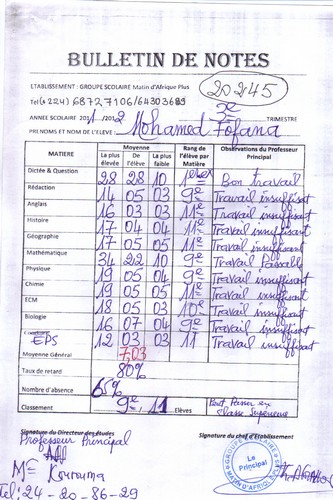 BULLETIN DE NOTES
ETABLISSEMENT : GROUPE SCOLAIRE Matin d'Afrique Plus
20245
Tel(+224) 68727106/64303689
3e TRIMESTRE
ANNEE SCOLAIRE 2011/2012
PRENOMS ET NOM DE L'ELEVE : Mohamed Fofana
MATIERE Moyenne Rang de l'élève par Matière Observations du Professeur Principal
La plus élevée De l'élève La plus faible
Dictée & Question 28 28 10 1er ex Bon Travail
Rédaction 14 05 03 9e Travail insuffisant
Anglais 16 03 03 11e Travail insuffisant
Histoire 17 04 04 11e Travail insuffisant
Géographie 17 05 05 11e Travail insuffisant
Mathématique 34 22 10 9e Travail Passable
Physique 19 05 04 9e Travail insuffisant
Chimie 19 05 05 11e Travail insuffisant
ECM 18 05 03 10e Travail insuffisant
Biologie 16 07 04 9e Travail insuffisant
EPS 12 03 03 11 Travail insuffisant
Moyenne Général 7,03
Taux de retard 80%
Nombre d'absence 65%
Classement 9e / 11 Elèves Peut Passer en Classe Supérieure
Signature du Directeur des Etudes Signature du chef d'Etablissement
Professeur Principal
Le Principal
Me Kourouma
Tel: 24-20-86-29